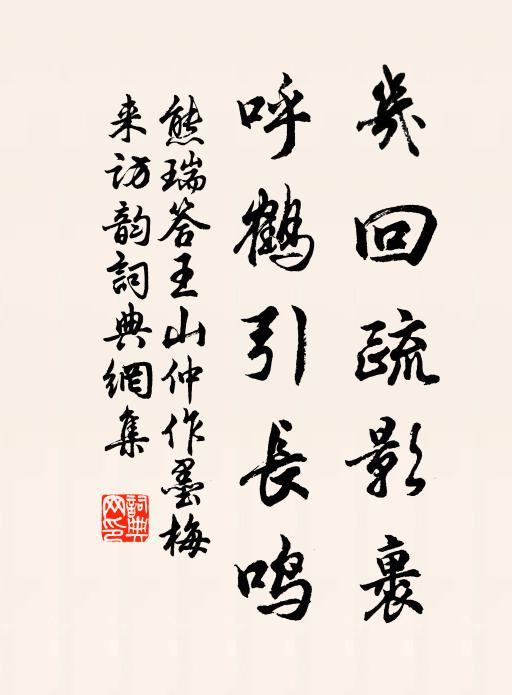 幾回疏影裏
呼鶴引長鳴
熊瑞答王山仲作墨梅
来访韵詞典網集
詞典網印